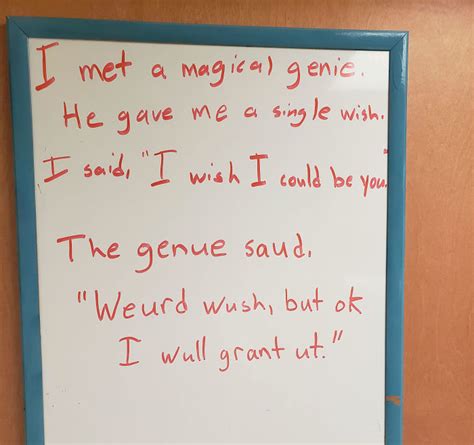 I met a magical genie.
He gave me a single wish.
I said, "I wish I could be you."
The genue saud,
"Weurd wush, but ok
I wull grant ut."